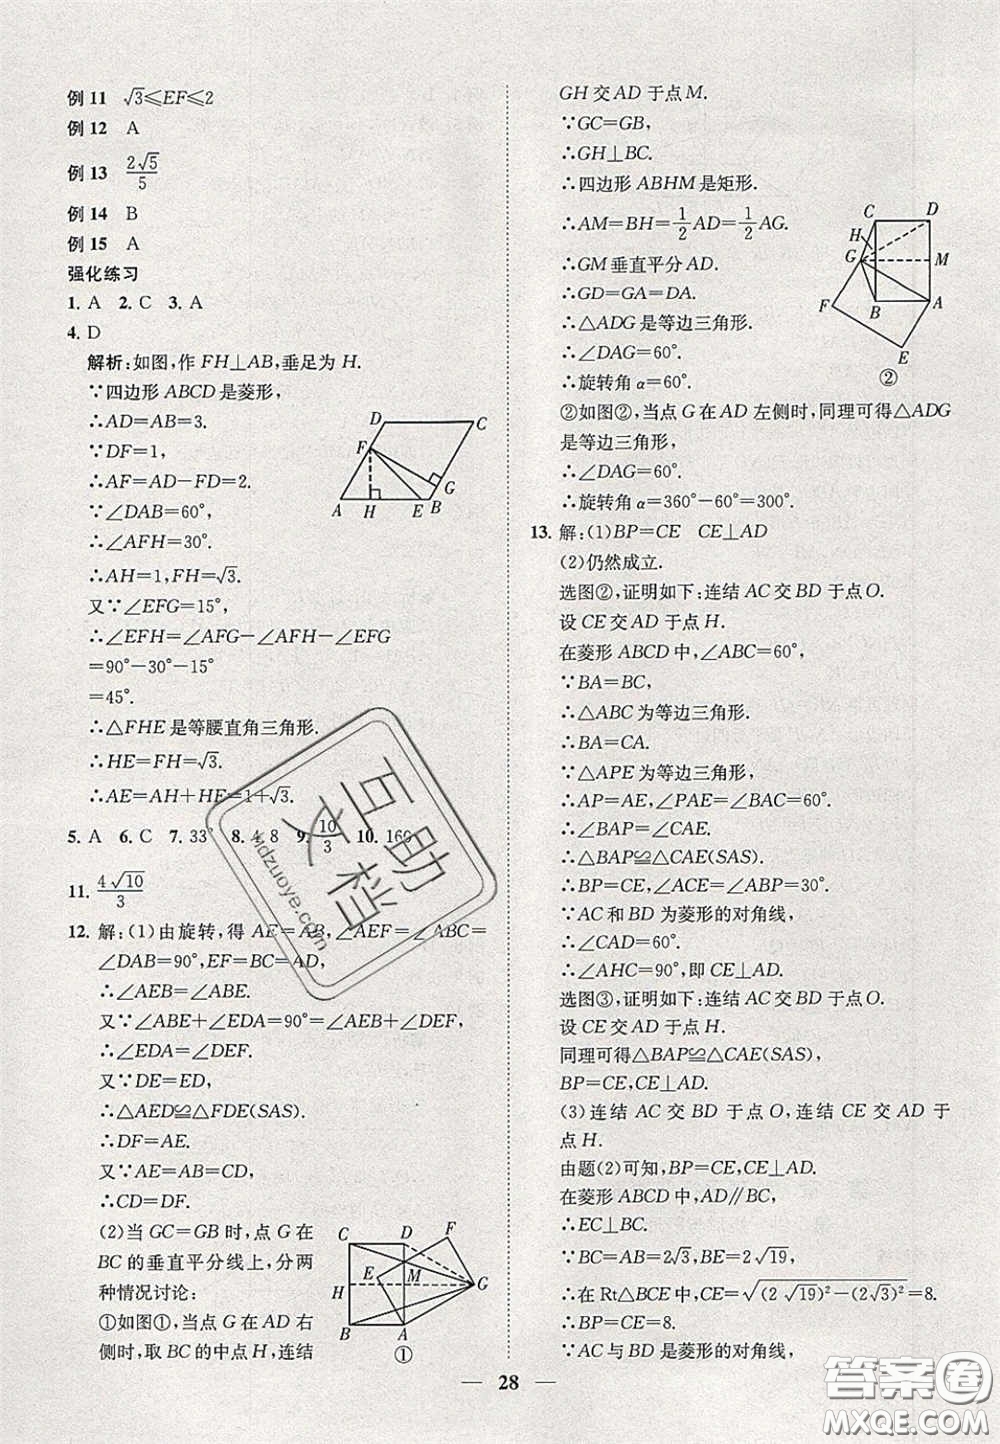 例11 √3≤EF≤2
例12 A
例13 2√5/5
例14 B
例15 A
强化练习
1. A 2. C 3. A
4. D
解析:如图,作 FH⊥AB,垂足为 H.
∵四边形 ABCD 是菱形,
∴AD=AB=3.
∵DF=1,
∴AF=AD-FD=2.
∵∠DAB=60°,
∴∠AFH=30°.
∴AH=1,FH=√3.
又∵∠EFG=15°,
∴∠EFH=∠AFG-∠AFH-∠EFG
=90°-30°-15°
=45°.
∴△FHE 是等腰直角三角形.
∴HE=FH=√3.
∴AE=AH+HE=1+√3.
D C F G A H E B
5. A 6. C 7. 33° 8. 4.8 9. 10/3 10. 160
11. 4√10/3
12. 解:(1)由旋转,得 AE=AB,∠AEF=∠ABC=
∠DAB=90°,EF=BC=AD,
∴∠AEB=∠ABE.
又∵∠ABE+∠EDA=90°=∠AEB+∠DEF,
∴∠EDA=∠DEF.
又∵DE=ED,
∴△AED≌△FDE(SAS).
∴DF=AE.
又∵AE=AB=CD,
∴CD=DF.
(2)当 GC=GB 时,点 G 在
BC 的垂直平分线上,分两
种情况讨论:
①如图①,当点 G 在 AD 右
侧时,取 BC 的中点 H,连结
C D F E M H G B A
①
GH 交 AD 于点 M.
∵GC=GB,
∴GH⊥BC.
∴四边形 ABHM 是矩形.
∴AM=BH=1/2AD=1/2AG.
∴GM 垂直平分 AD.
∴GD=GA=DA.
∴△ADG 是等边三角形.
∴∠DAG=60°.
∴旋转角 α=60°.
C D H G M F B A E
②
②如图②,当点 G 在 AD 左侧时,同理可得△ADG
是等边三角形,
∴∠DAG=60°.
∴旋转角 α=360°-60°=300°.
13. 解:(1)BP=CE CE⊥AD
(2)仍然成立.
选图②,证明如下:连结 AC 交 BD 于点 O.
设 CE 交 AD 于点 H.
在菱形 ABCD 中,∠ABC=60°,
∵BA=BC,
∴△ABC 为等边三角形.
∴BA=CA.
∵△APE 为等边三角形,
∴AP=AE,∠PAE=∠BAC=60°.
∴∠BAP=∠CAE.
∴△BAP≌△CAE(SAS).
∴BP=CE,∠ACE=∠ABP=30°.
∵AC 和 BD 为菱形的对角线,
∴∠CAD=60°.
∴∠AHC=90°,即 CE⊥AD.
选图③,证明如下:连结 AC 交 BD 于点 O.
设 CE 交 AD 于点 H.
同理可得△BAP≌△CAE(SAS),
BP=CE,CE⊥AD.
(3)连结 AC 交 BD 于点 O,连结 CE 交 AD 于
点 H.
由题(2)可知,BP=CE,CE⊥AD.
在菱形 ABCD 中,AD∥BC,
∴EC⊥BC.
∵BC=AB=2√3,BE=2√19,
∴在 Rt△BCE 中,CE=√((2√19)²-(2√3)²)=8.
∴BP=CE=8.
∵AC 与 BD 是菱形的对角线,
28
互助文档
Mdzuoye.com
答案圈
MXQE.COM